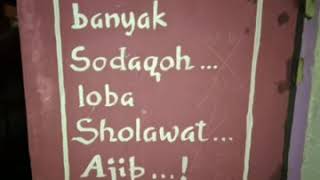 banyak
Sodaqoh...
loba
Sholawat...
Ajib...!